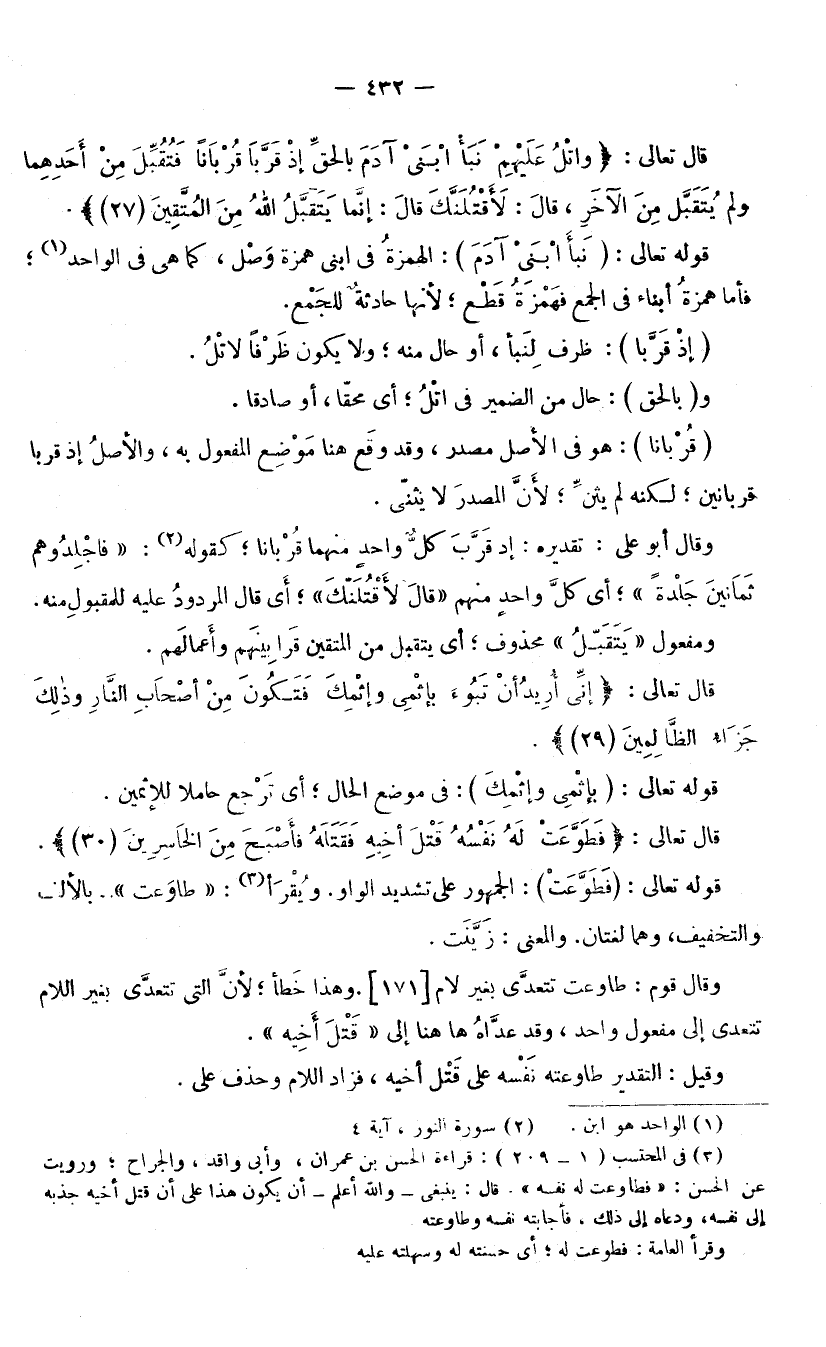 — ٤٣٢ —
قال تعالى : ﴿ واتْلُ عَلَيْهِمْ نَبَأَ ابْنَىْ آدَمَ بالحَقِّ إذْ قَرَّبَا قُرْبَاناً فَتُقُبِّلَ مِنْ أَحَدِهِما
ولم يُتَقَبَّل مِنَ الْآخَرِ ، قالَ : لَأَقْتُلَنَّكَ قالَ : إنَّما يَتَقَبَّلُ اللهُ مِنَ المُتَّقِينَ (٢٧) ﴾ .
قوله تعالى : ( نَبأَ ابْنَىْ آدَمَ ) : الهمزةُ فى ابنى همزة وَصْل ، كما هى فى الواحد(١) ؛
فأما همزةُ أبناء فى الجمع فهَمْزَةُ قَطْع ؛ لأنها حادثةٌ للجَمْع.
( إذْ قَرَّبا ) : ظرف لِنَبأ ، أو حال منه ؛ ولا يكون ظَرْفاً لاتْلُ .
و( بالحق ) : حال من الضمير فى اتْلُ ؛ أى محقّا ، أو صادقا .
( قُرْبانا ) : هو فى الأصل مصدر ، وقد وقَع هنا مَوْضِع المفعول به ، والأصلُ إذ قربا
قربانين ؛ لـكنه لم يثنِّ ؛ لأنَّ المصدرَ لا يثنّى .
وقال أبو على : تقديره : إذ قَرَّبَ كلُّ واحدٍ منهما قُرْبانا ؛ كقوله(٢) : « فاجْلِدُوهم
ثَمَانينَ جَلْدةً » ؛ أى كلَّ واحدٍ منهم «قالَ لأَقْتُلَنّكَ» ؛ أى قال المردودُ عليه للمقبولِ منه.
ومفعول « يَتَقَبّـلُ » محذوف ؛ أى يتقبل من المتقين قَرابِينَهم وأعمالَهم .
قال تعالى : ﴿ إنِّى أُريدُ أنْ تَبُوءَ بإثْمِى وإثْمِكَ فَتَـكُونَ مِنْ أصْحَابِ النَّارِ وذٰلِكَ
جَزَاء الظَّالِمِينَ (٢٩) ﴾ .
قوله تعالى : ( بإثْمِى وإثْمِكَ ) : فى موضع الحال ؛ أى تَرْجع حاملا للإثمين .
قال تعالى : ﴿ فَطَوَّعَتْ لَهُ نَفْسُهُ قَتْلَ أخِيهِ فَقَتَلَهُ فأَصْبَحَ مِنَ الخَاسِرِينَ (٣٠) ﴾ .
قوله تعالى : (فَطَوَّعَتْ) : الجمهور على تشديد الواو. ويُقْرَأ(٣) : « طاوَعت ».. بالألف
والتخفيف، وهما لغتان. والمعنى : زَيَّنَت .
وقال قوم : طاوعت تتعدَّى بغير لام [١٧١] .وهذا خَطأ ؛ لأنَّ التى تتعدَّى بغير اللام
تتعدى إلى مفعول واحد ، وقد عدَّاهُ ها هنا إلى « قَتْلَ أَخِيه » .
وقيل : التقدير طاوعته نَفْسه على قَتْل أخيه ، فزاد اللام وحذف على .
(١) الواحد هو ابن . (٢) سورة النور ، آية ٤
(٣) فى المحتسب ( ١ – ٢٠٩ ) : قراءة الحسن بن عمران ، وأبى واقد ، والجراح ؛ ورويت
عن الحسن : « فطاوعت له نفسه » . قال : ينبغى – والله أعلم – أن يكون هذا على أن قتل أخيه جذبه
إلى نفسه، ودعاه إلى ذلك ، فأجابته نفسه وطاوعته
وقرأ العامة : فطوعت له ؛ أى حسنته له وسهلته عليه